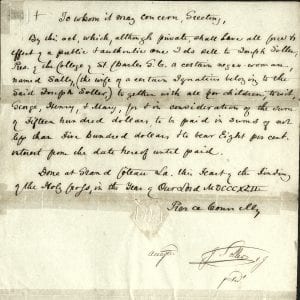 + To whom it may concern, Greeting,
By this act, which, although private, shall have all force &
effect of a public & authentic one I do sell to Joseph Soller,
of the College of St Charles G. Co. a certain negro woman,
named Sally (the wife of a certain Ignatius belong to the
Said Joseph Soller) together with all her children, to wit,
George, Henry, & Mary, for & in consideration of the sum
of Fifteen hundred dollars to be paid in sums of not
less than Five hundred dollars & to bear Eight per cent.
interest from the date hereof until paid.
Done at Grand Coteau La. this Feast of the Finding
of the Holy Cross, in the Year of Our Lord MDCCCXLIII
Pierce Connelly
accepted
J. Soller